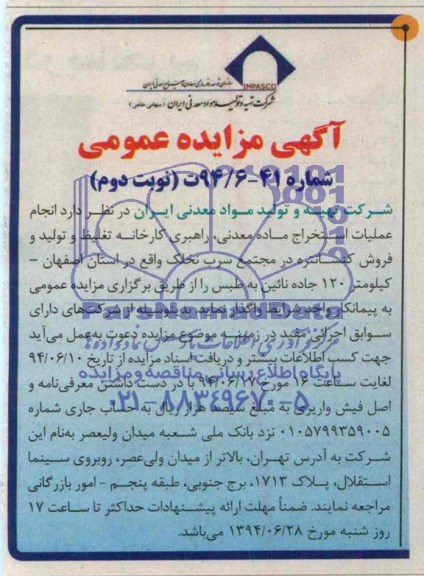 IMPASCO
شرکت تهیه و تولید مواد معدنی ایران (سهامی خاص)
آگهی مزایده عمومی
شماره ۴۱-۹۴/۶ت (نوبت دوم)
شرکت تهیه و تولید مواد معدنی ایران در نظر دارد انجام
عملیات استخراج ماده معدنی، راهبری کارخانه تغلیظ و تولید و
فروش کنسانتره در مجتمع سرب نخلک واقع در استان اصفهان -
کیلومتر ۱۲۰ جاده نائین به طبس را از طریق برگزاری مزایده عمومی
به پیمانکار واجد شرایط واگذار نماید. بدینوسیله از شرکت‌های دارای
سوابق اجرائی مفید در زمینه موضوع مزایده دعوت به‌عمل می‌آید
جهت کسب اطلاعات بیشتر و دریافت اسناد مزایده از تاریخ ۹۴/۰۶/۱۰
لغایت ساعت ۱۶ مورخ ۹۴/۰۶/۱۷ با در دست داشتن معرفی‌نامه و
اصل فیش واریزی به مبلغ سیصد هزار ریال به حساب جاری شماره
۰۱۰۵۷۹۹۳۵۹۰۰۵ نزد بانک ملی شعبه میدان ولیعصر به‌نام این
شرکت به آدرس تهران، بالاتر از میدان ولی‌عصر، روبروی سینما
استقلال، پلاک ۱۷۱۳، برج جنوبی، طبقه پنجم - امور بازرگانی
مراجعه نمایند. ضمناً مهلت ارائه پیشنهادات حداکثر تا ساعت ۱۷
روز شنبه مورخ ۱۳۹۴/۰۶/۲۸ می‌باشد.
پایگاه اطلاع رسانی مناقصه و مزایده
۰۲۱-۸۸۳۴۹۶۷۰-۵